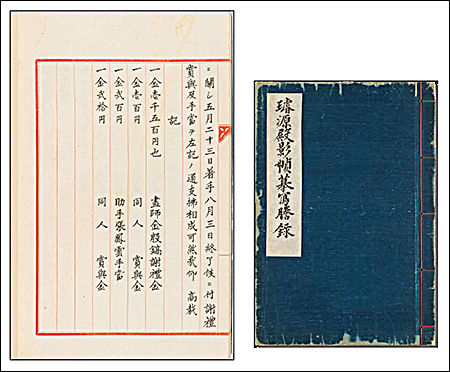 璿源殿影幀摹寫謄錄
ニ關シ五月二十三日着手八月三日終了候ニ付謝禮
賞與及手當ヲ左記ノ通支拂相成可然哉仰 高裁
記
一金壱千五百円也 畫師金殷鎬謝禮金
一金壱百円 同人 賞與金
一金弐百円 助手張鳳雲手當
一金弐拾円 同人 賞與金